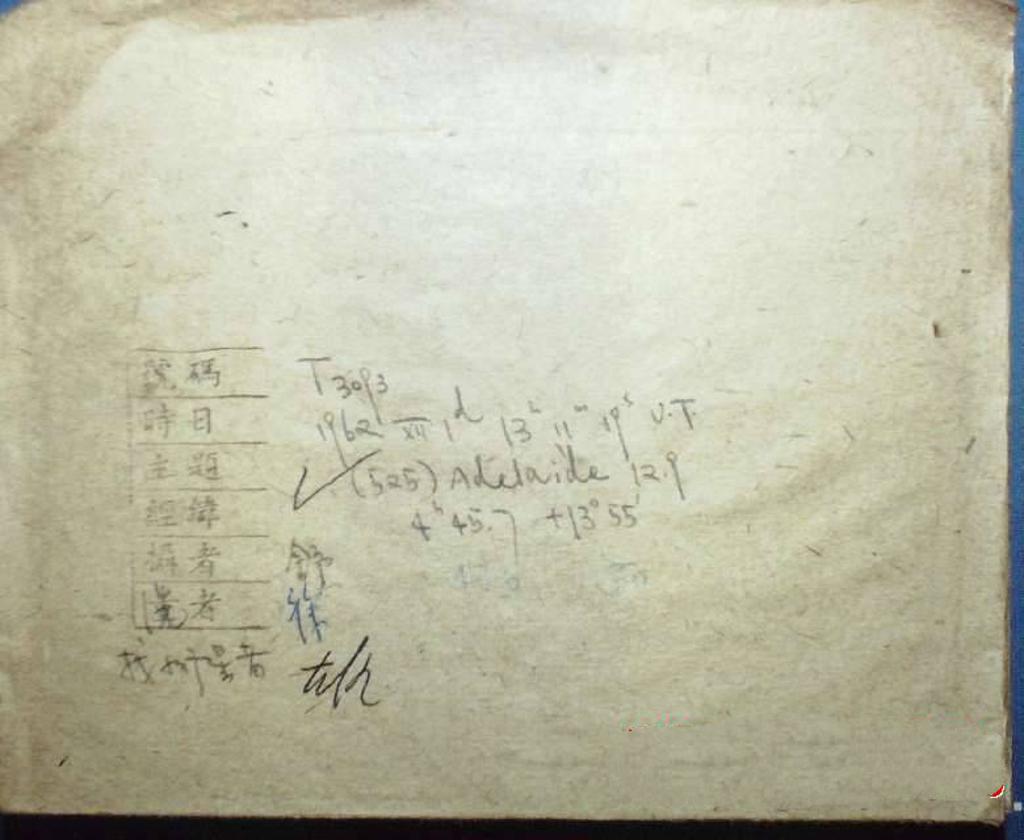 號碼 T3093
時日 1962 XII 1d 13h 11m 19s U.T
主題 ✓ (525) Adelaide 12.9
經緯 4h 45.7 +13° 55'
攝者 舒
量者 徐
找 星者